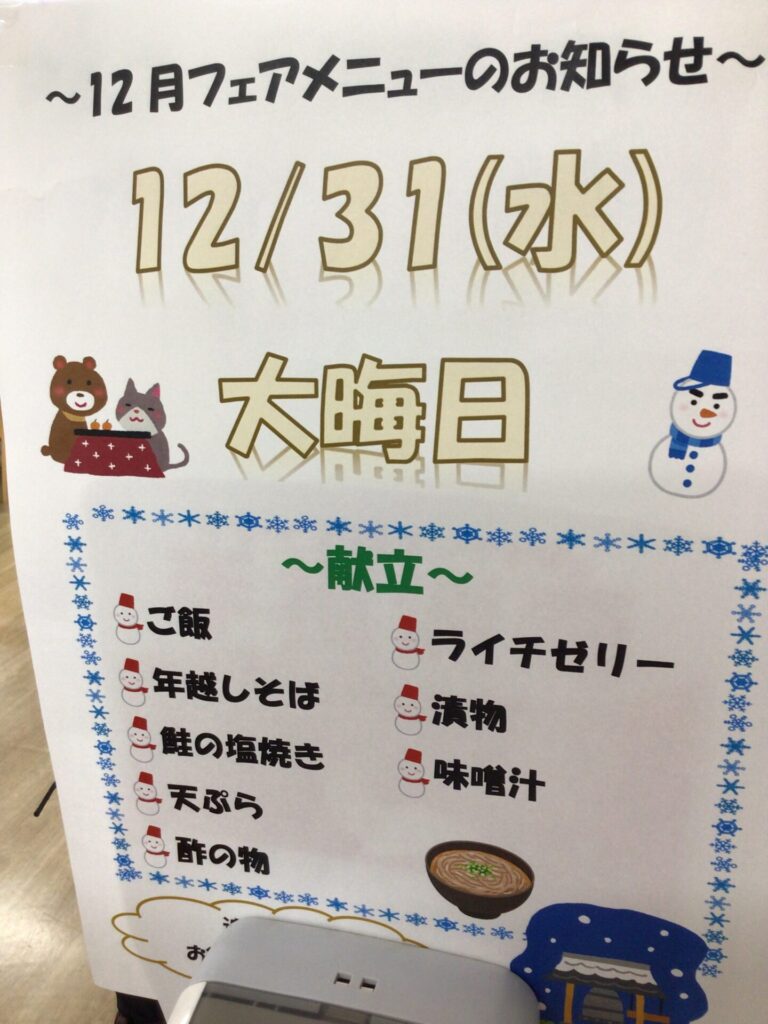 ～12月フェアメニューのお知らせ～
12/31(水)
大晦日
～献立～
ご飯
年越しそば
鮭の塩焼き
天ぷら
酢の物
ライチゼリー
漬物
味噌汁